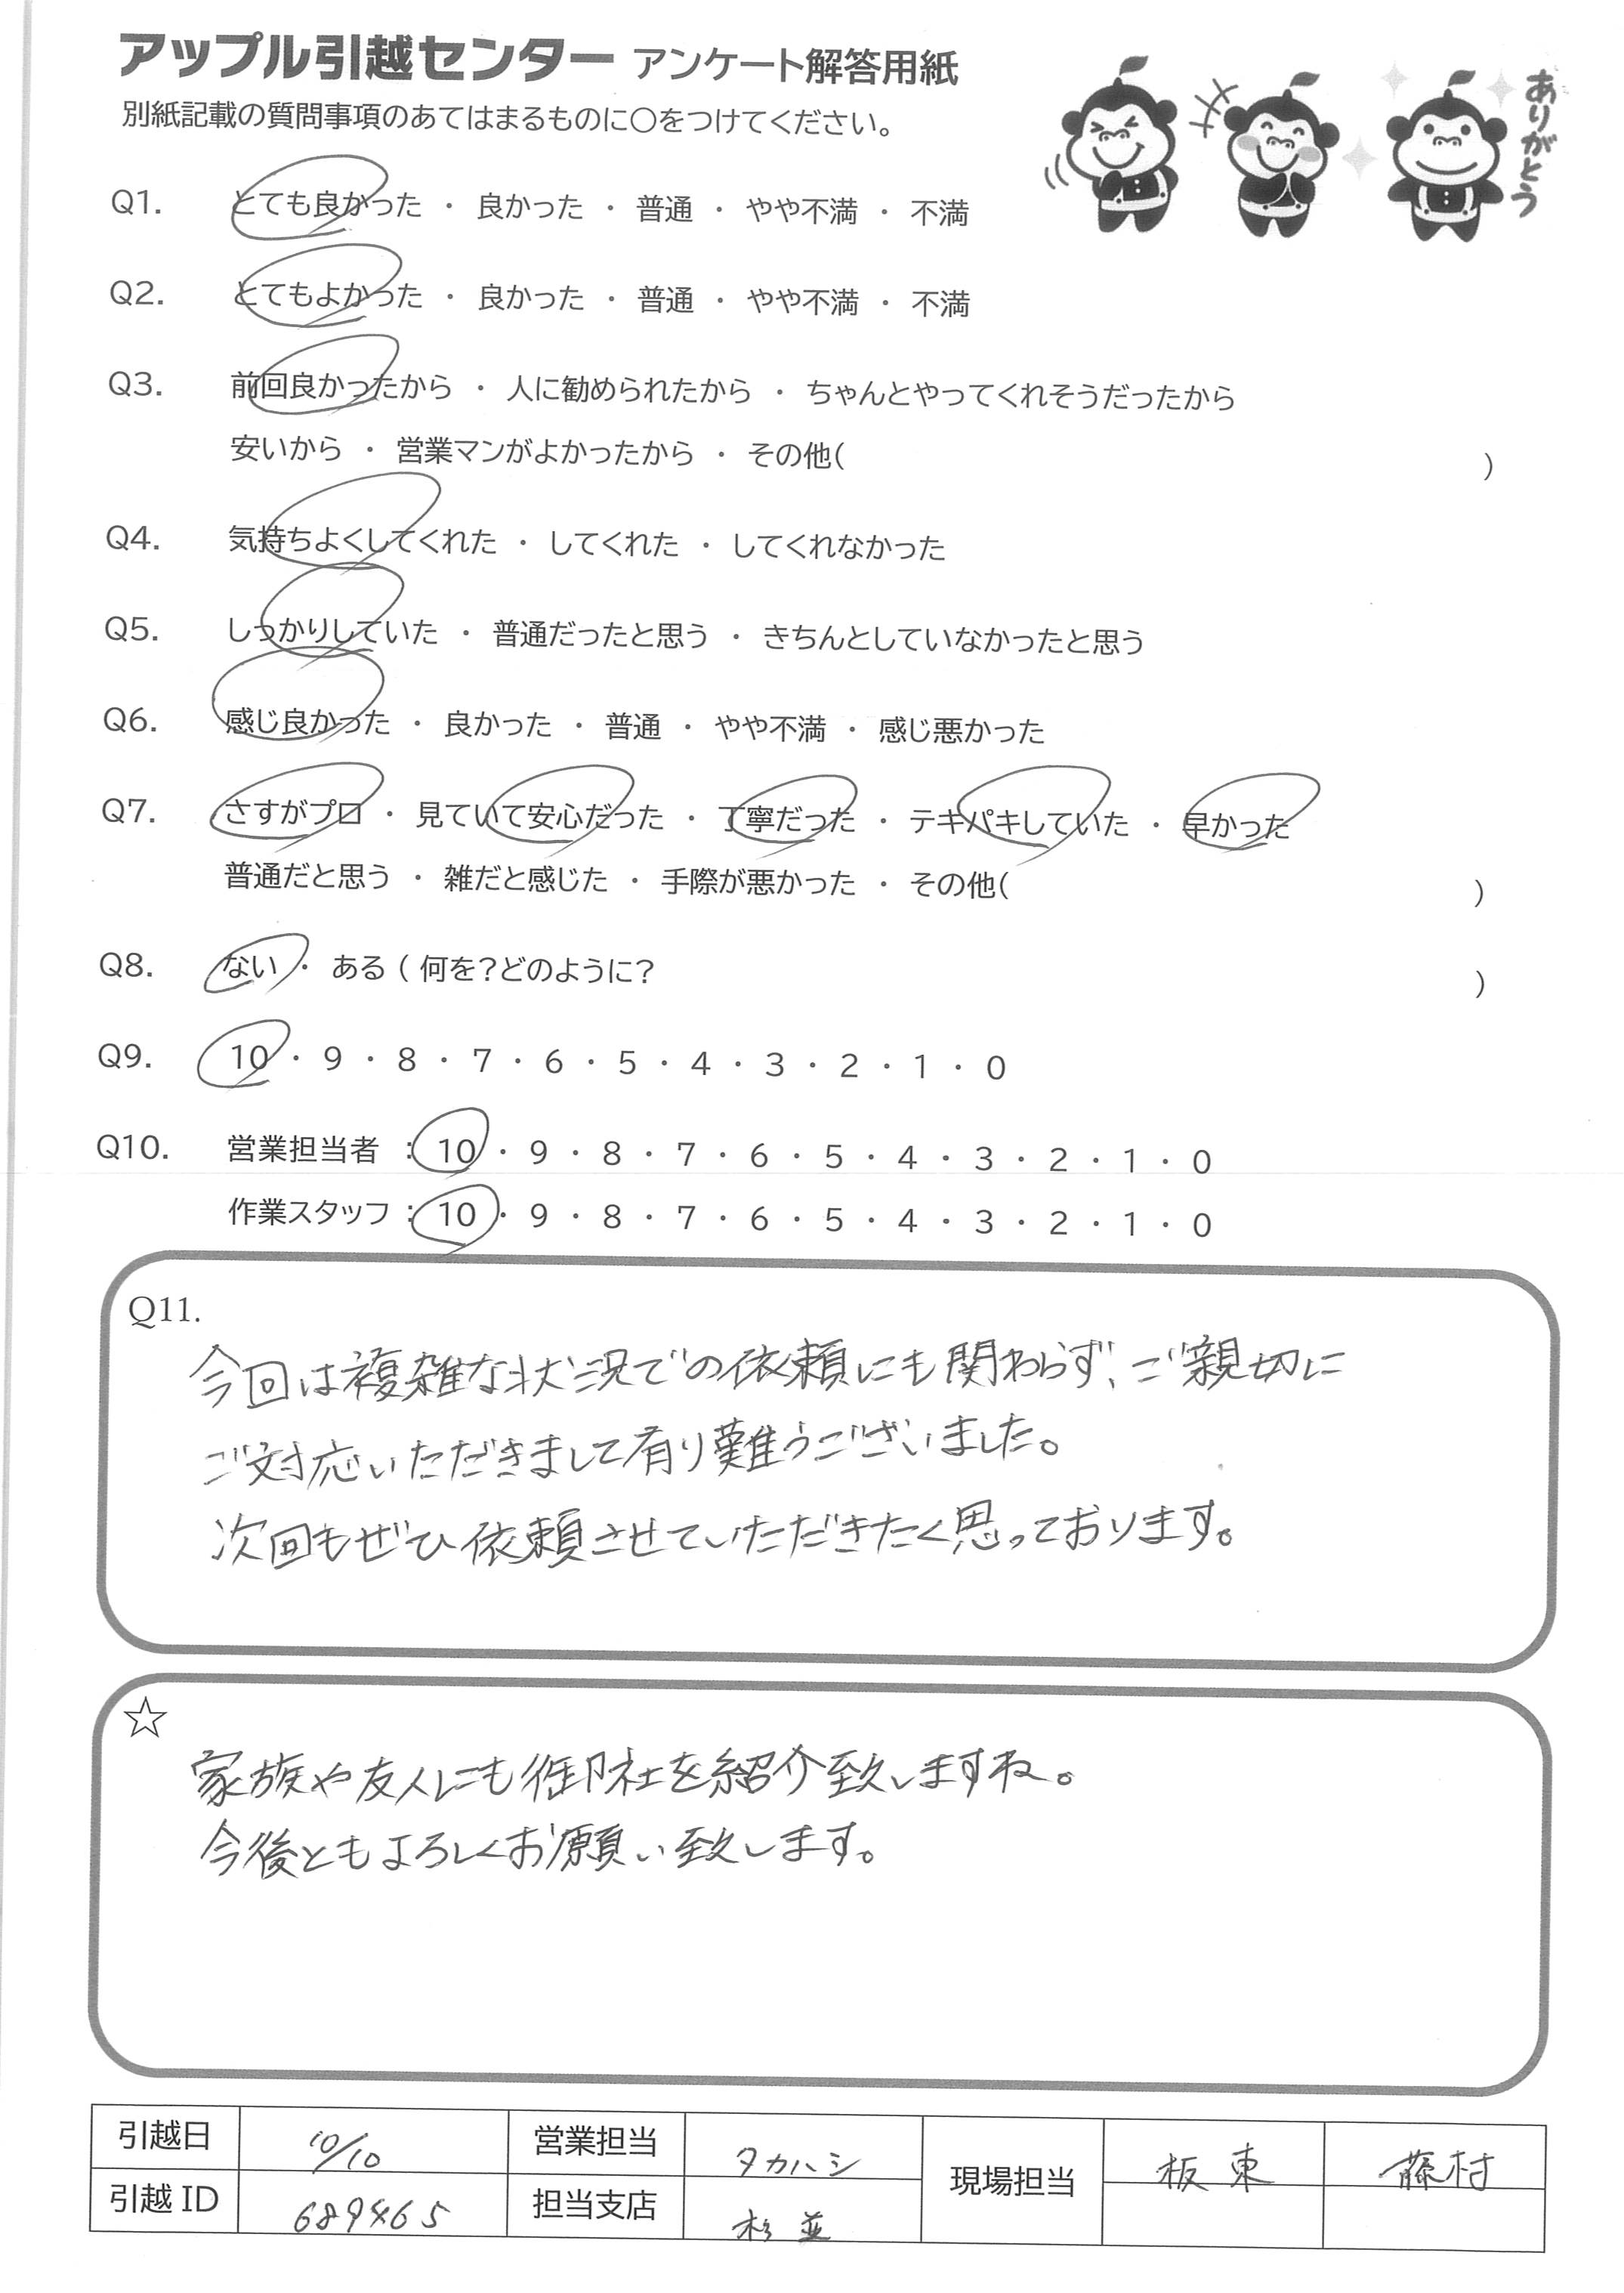 アップル引越センター アンケート解答用紙
別紙記載の質問事項のあてはまるものに○をつけてください。
ありがとう
Q1. とても良かった ・ 良かった ・ 普通 ・ やや不満 ・ 不満
Q2. とてもよかった ・ 良かった ・ 普通 ・ やや不満 ・ 不満
Q3. 前回良かったから ・ 人に勧められたから ・ ちゃんとやってくれそうだったから
安いから ・ 営業マンがよかったから ・ その他( )
Q4. 気持ちよくしてくれた ・ してくれた ・ してくれなかった
Q5. しっかりしていた ・ 普通だったと思う ・ きちんとしていなかったと思う
Q6. 感じ良かった ・ 良かった ・ 普通 ・ やや不満 ・ 感じ悪かった
Q7. さすがプロ ・ 見ていて安心だった ・ 丁寧だった ・ テキパキしていた ・ 早かった
普通だと思う ・ 雑だと感じた ・ 手際が悪かった ・ その他( )
Q8. ない ・ ある ( 何を?どのように? )
Q9. 10 ・ 9 ・ 8 ・ 7 ・ 6 ・ 5 ・ 4 ・ 3 ・ 2 ・ 1 ・ 0
Q10. 営業担当者 : 10 ・ 9 ・ 8 ・ 7 ・ 6 ・ 5 ・ 4 ・ 3 ・ 2 ・ 1 ・ 0
作業スタッフ : 10 ・ 9 ・ 8 ・ 7 ・ 6 ・ 5 ・ 4 ・ 3 ・ 2 ・ 1 ・ 0
Q11.
今回は複雑な状況での依頼にも関わらず、ご親切に
ご対応いただきまして有り難うございました。
次回もぜひ依頼させていただきたく思っております。
☆
家族や友人にも御社を紹介致しますね。
今後ともよろしくお願い致します。
引越日 10/10 営業担当 タカハシ 現場担当 板東 藤村
引越 ID 689465 担当支店 杉並